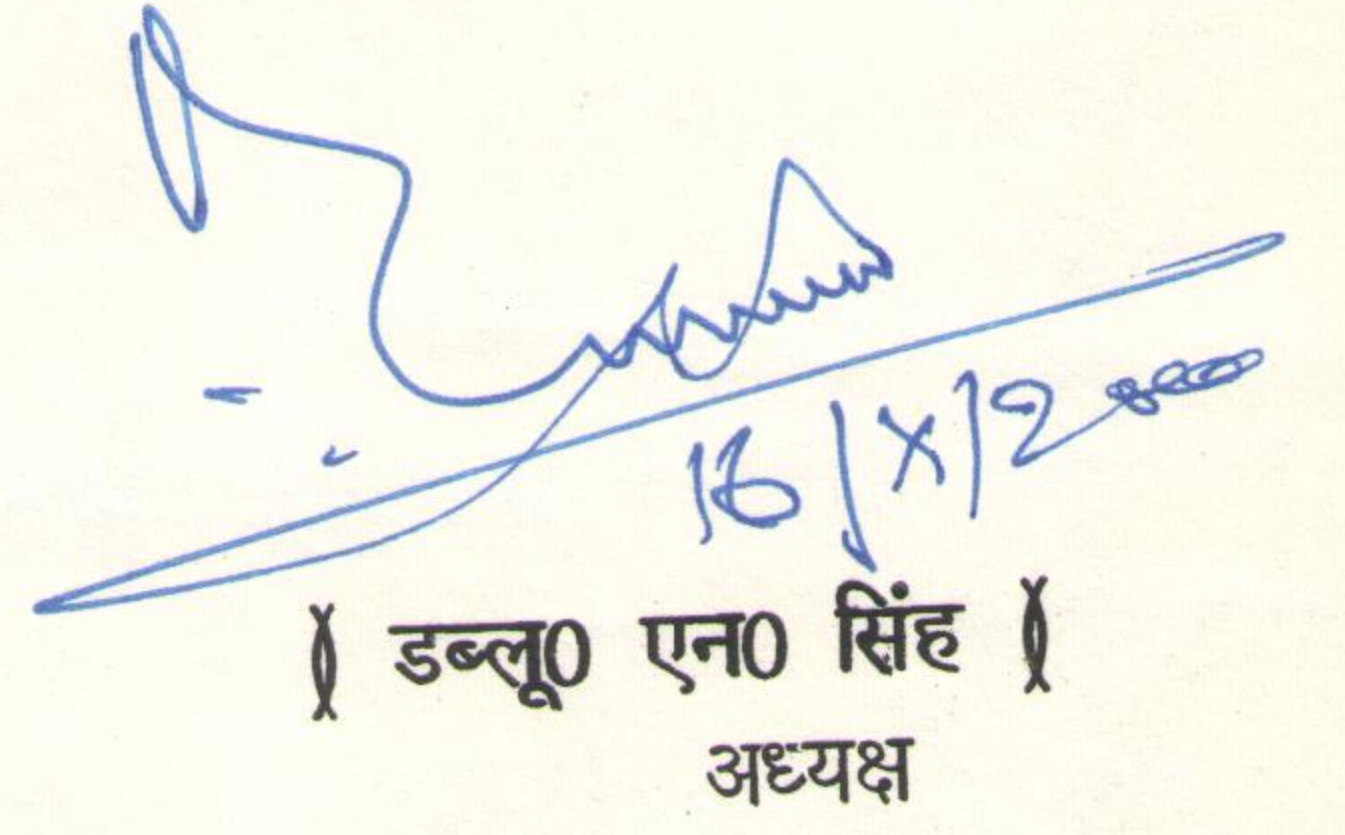 16/X/2000
( डब्लू0 एन0 सिंह )
अध्यक्ष